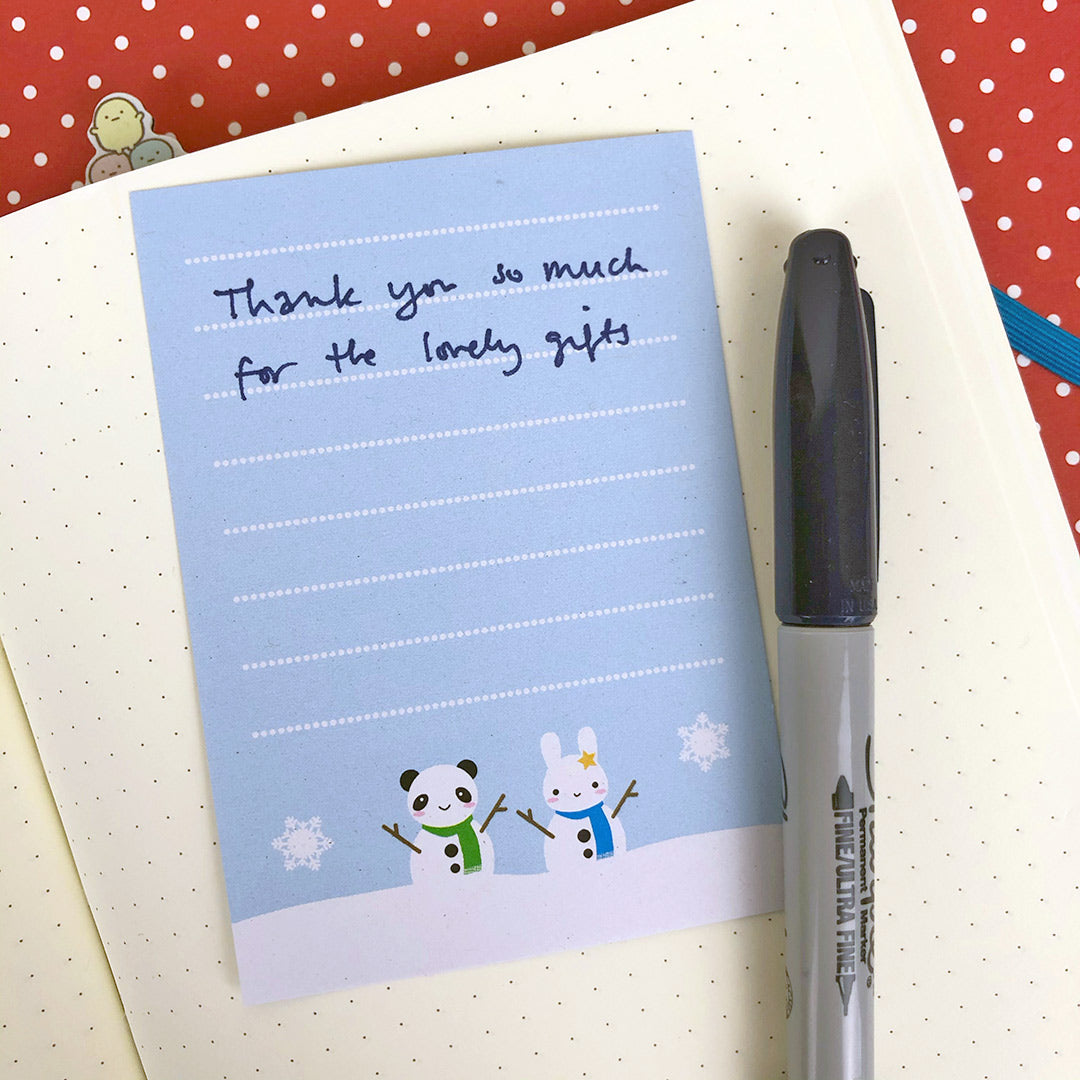 Thank you so much
for the lovely gifts
Sharpie®
Permanent Marker
FINE/ULTRA FINE